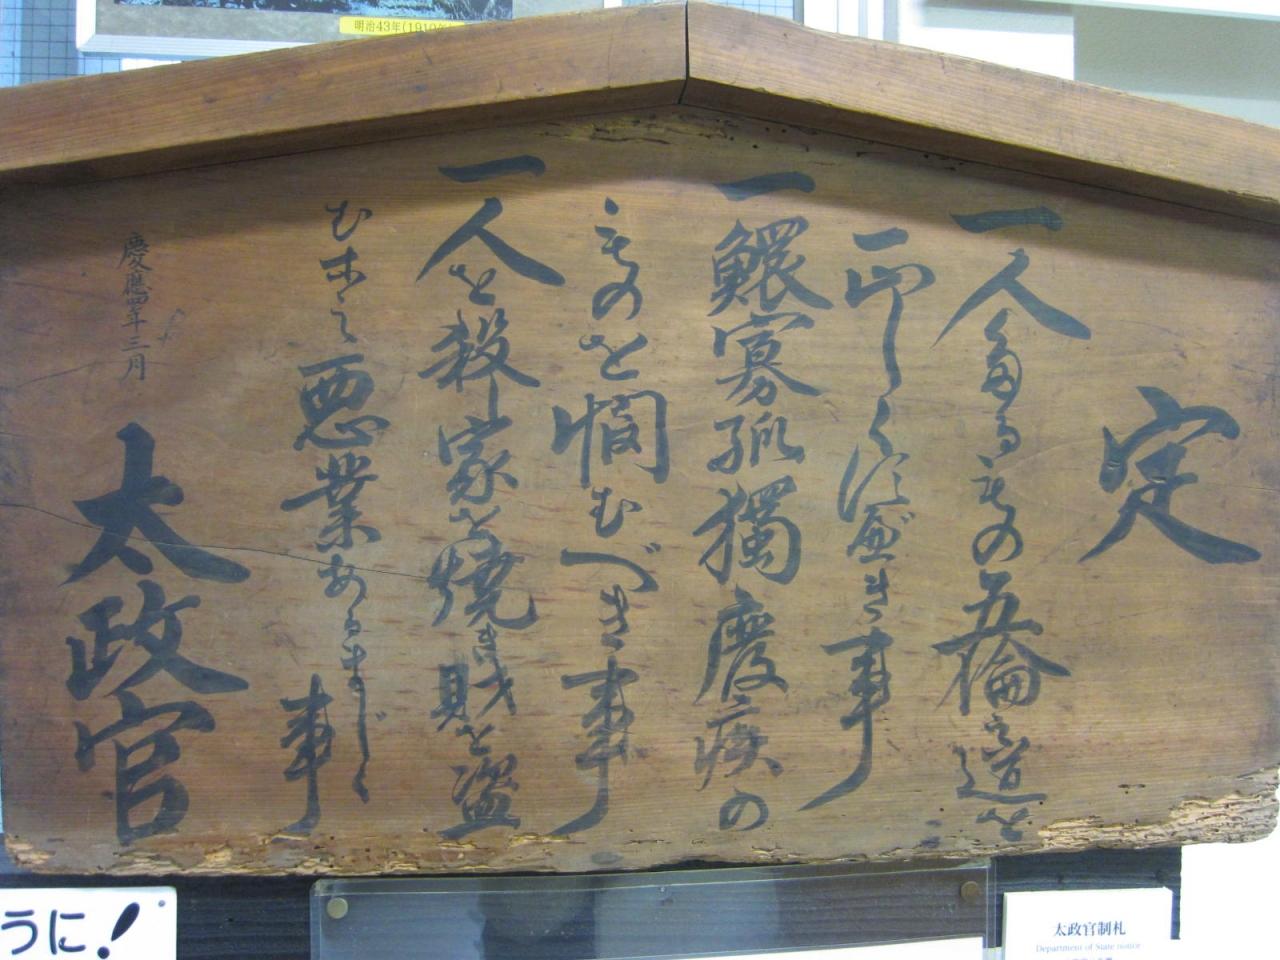 定
一人たるもの五倫之道を
正しくすべき事
一鰥寡孤獨廢疾の
ものを憫むべき事
一人を殺家を焼き財を盗
む等之悪業あるまじく
事
慶應四年三月
太政官
明治43年(1910年)
うに!
太政官制札
Department of State notice